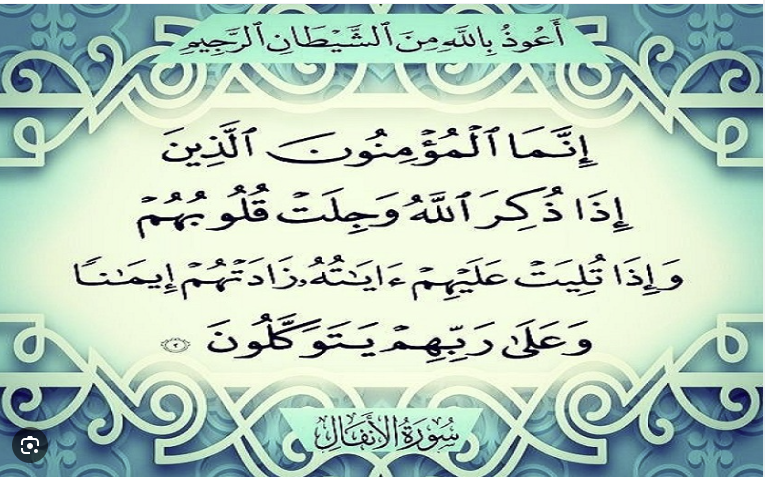 أَعُوذُ بِاللَّهِ مِنَ ٱلشَّيْطَانِ ٱلرَّجِيمِ
إِنَّمَا ٱلْمُؤْمِنُونَ ٱلَّذِينَ
إِذَا ذُكِرَ ٱللَّهُ وَجِلَتْ قُلُوبُهُمْ
وَإِذَا تُلِيَتْ عَلَيْهِمْ ءَايَٰتُهُۥ زَادَتْهُمْ إِيمَٰنًا
وَعَلَىٰ رَبِّهِمْ يَتَوَكَّلُونَ ٢
سُورَةُ الأَنفَالِ